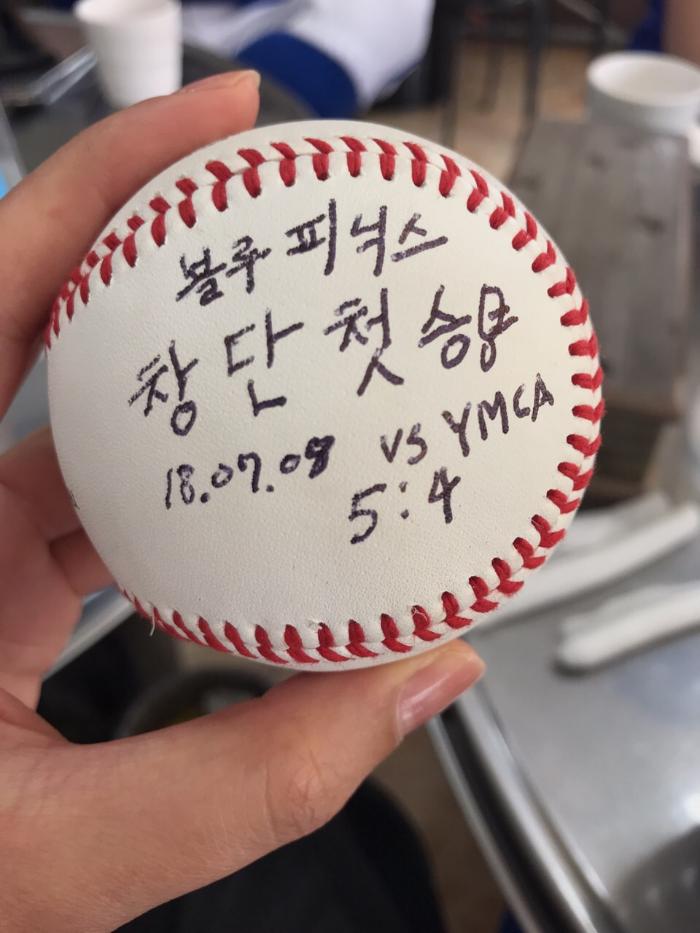 블루 피닉스
창단 첫 승용
18.07.08 vs YMCA
5:4